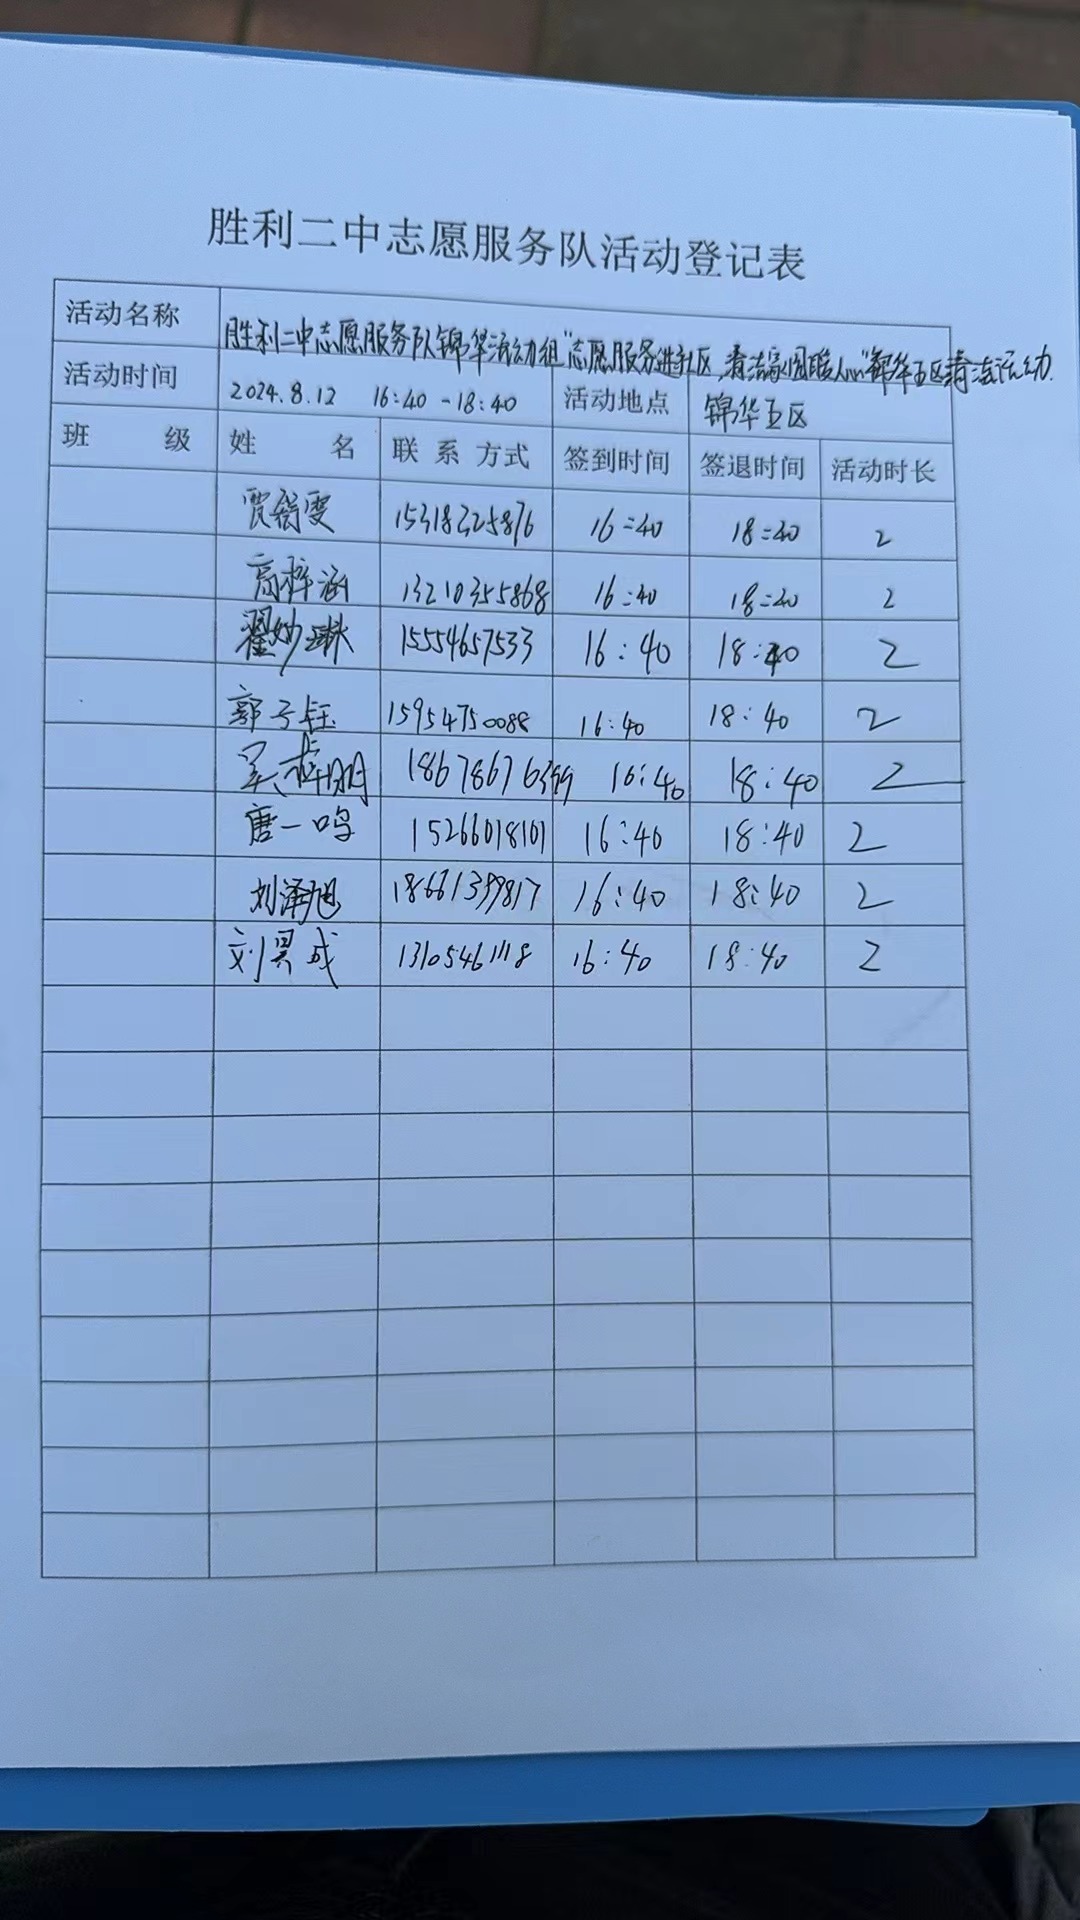 胜利二中志愿服务队活动登记表
活动名称 胜利二中志愿服务队锦华活动组"志愿服务进社区,清洁家园暖人心"锦华五区清洁活动.
活动时间 2024.8.12 16:40-18:40 活动地点 锦华五区
班 级 姓 名 联系方式 签到时间 签退时间 活动时长
贾雯 15318325876 16:40 18:40 2
高梓涵 13210355868 16:40 18:40 2
翟妙琳 15554657533 16:40 18:40 2
郭子钰 15954750088 16:40 18:40 2
吴梓明 18678676399 16:40 18:40 2
唐一鸣 15266018101 16:40 18:40 2
刘泽旭 18661399817 16:40 18:40 2
刘昊成 13105461118 16:40 18:40 2